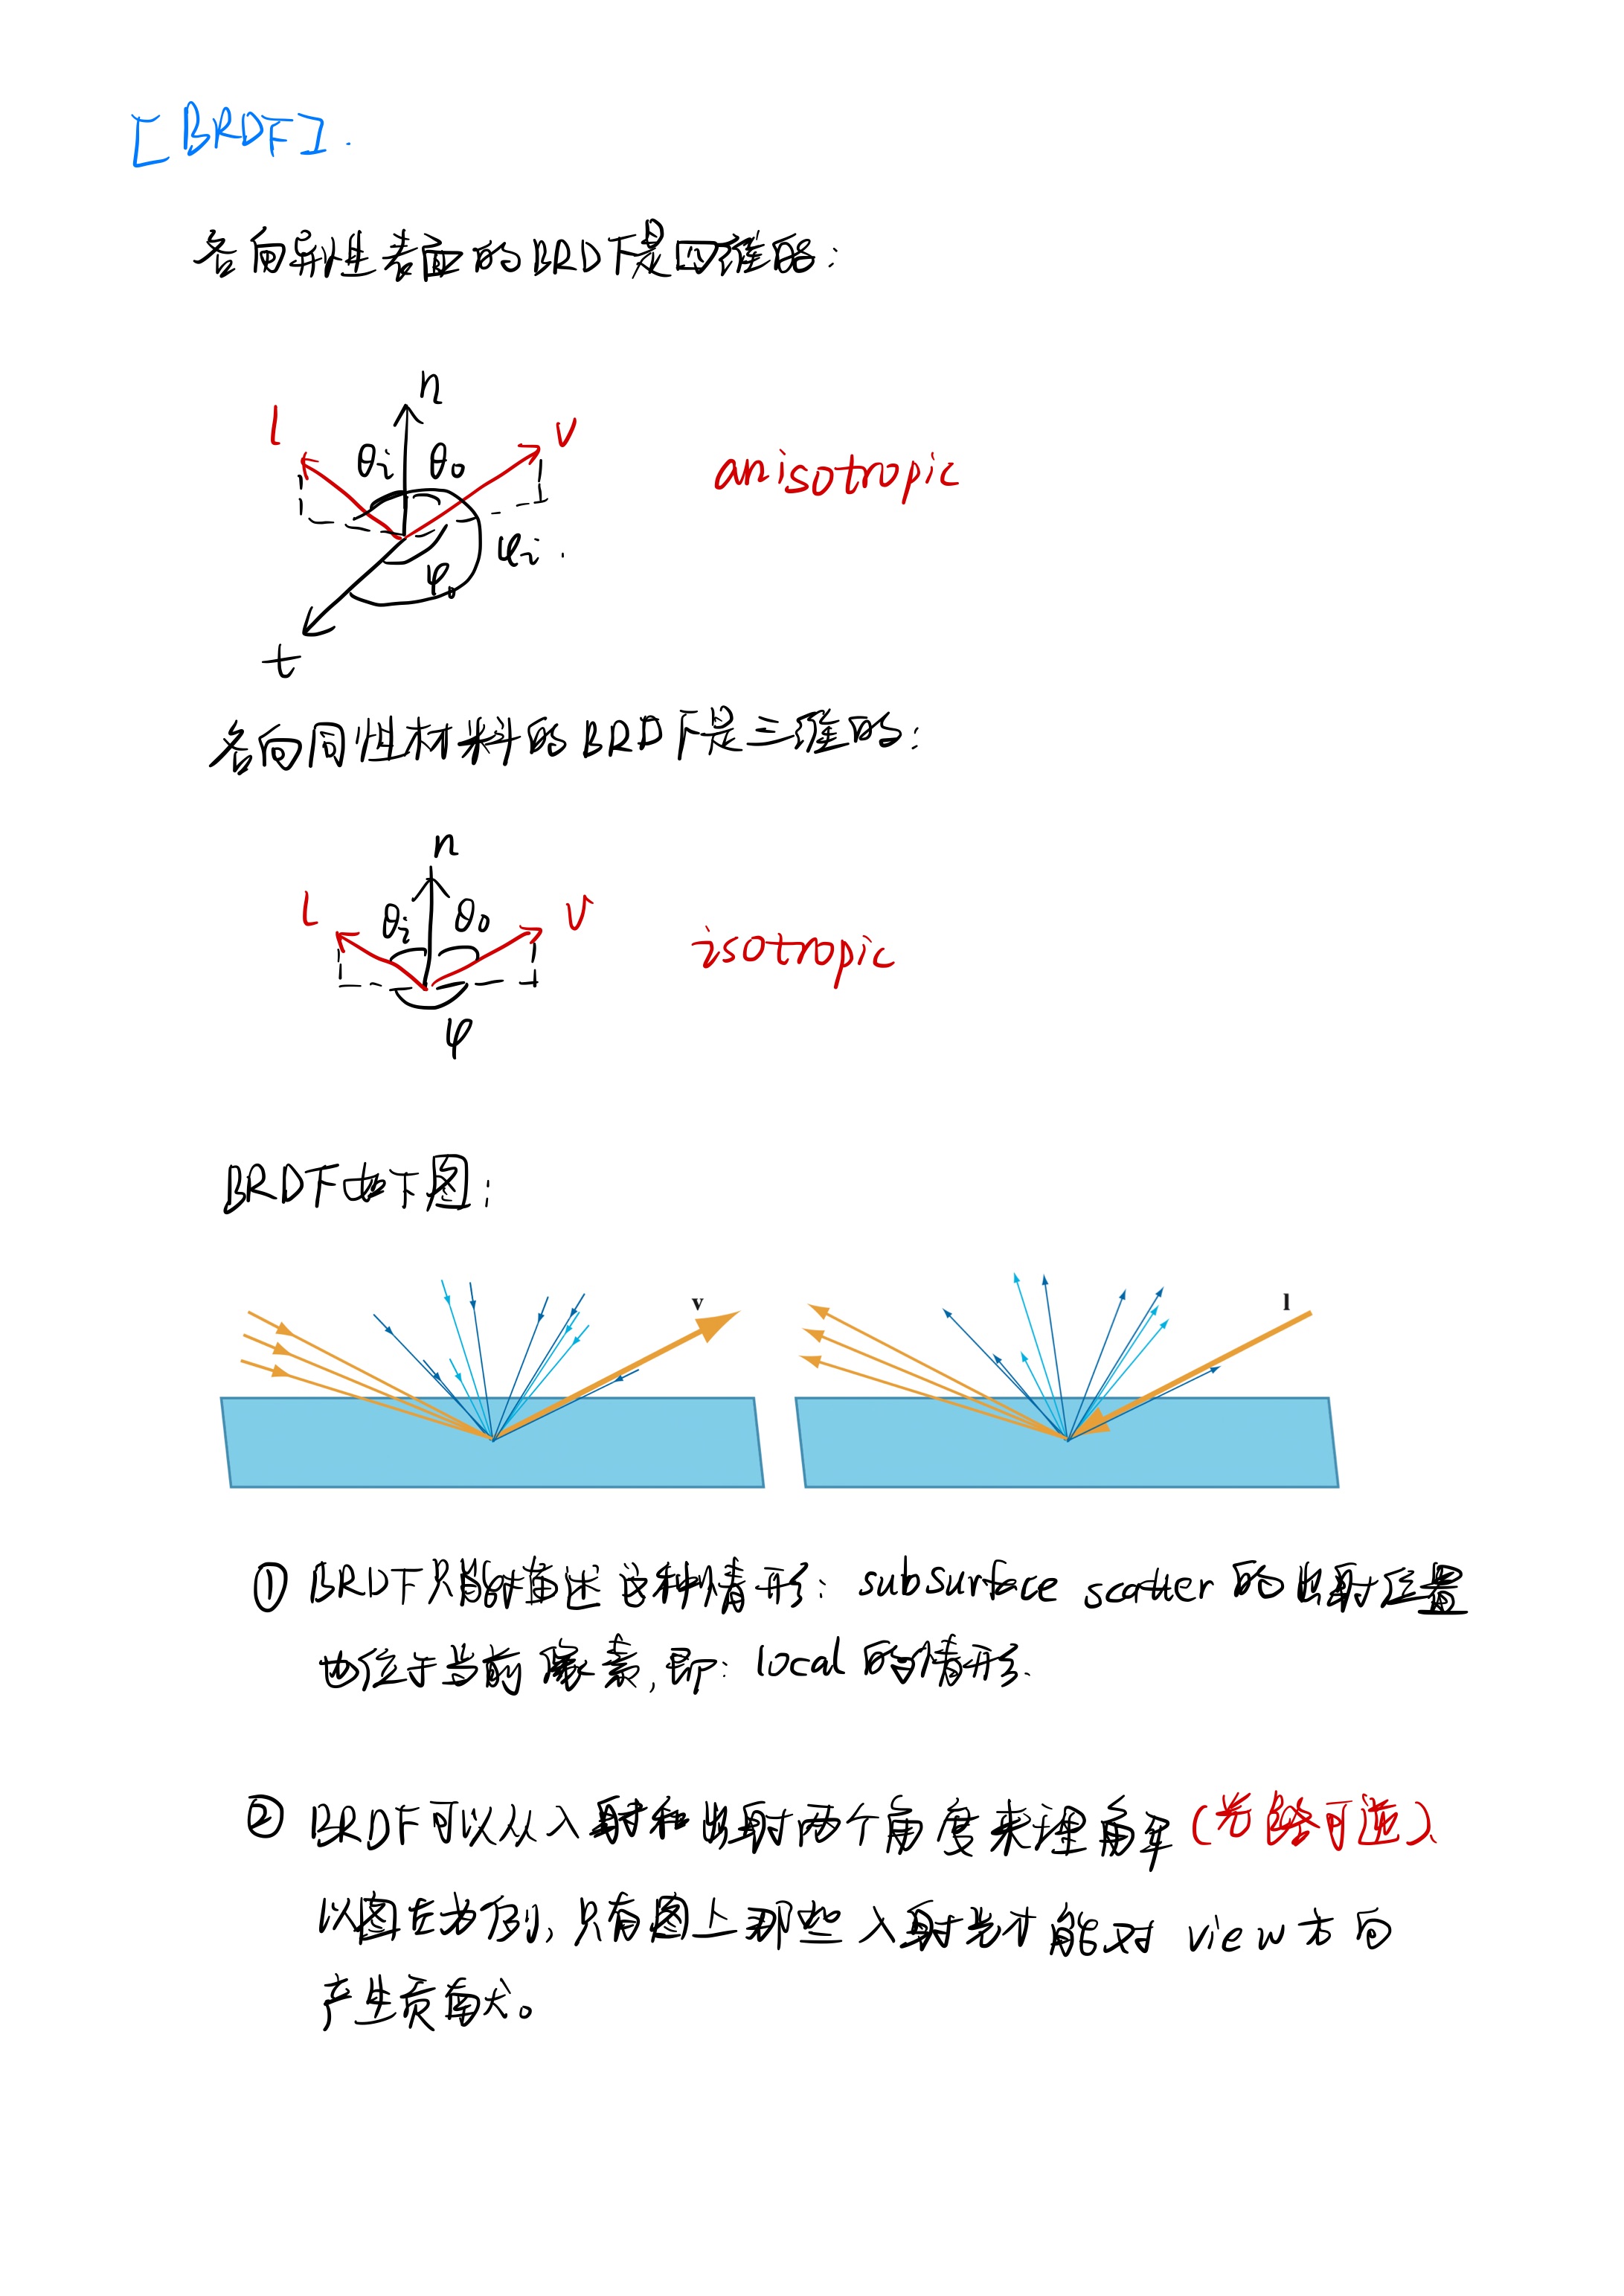 [BRDF].
各向异性表面的BRDF是四维的:
n
l
v
θi
θo
anisotropic
φi.
φo
t
各向同性材料的BRDF是三维的:
n
l
v
θi
θo
isotropic
φ
BRDF如下图:
v
l
① BRDF只能描述这种情形: subsurface scatter的出射位置
也位于当前像素,即: local的情形.
② BRDF可以从入射和出射两个角度来理解(光路可逆).
以图左为例,只有图上那些入射光才能对view方向
产生贡献。